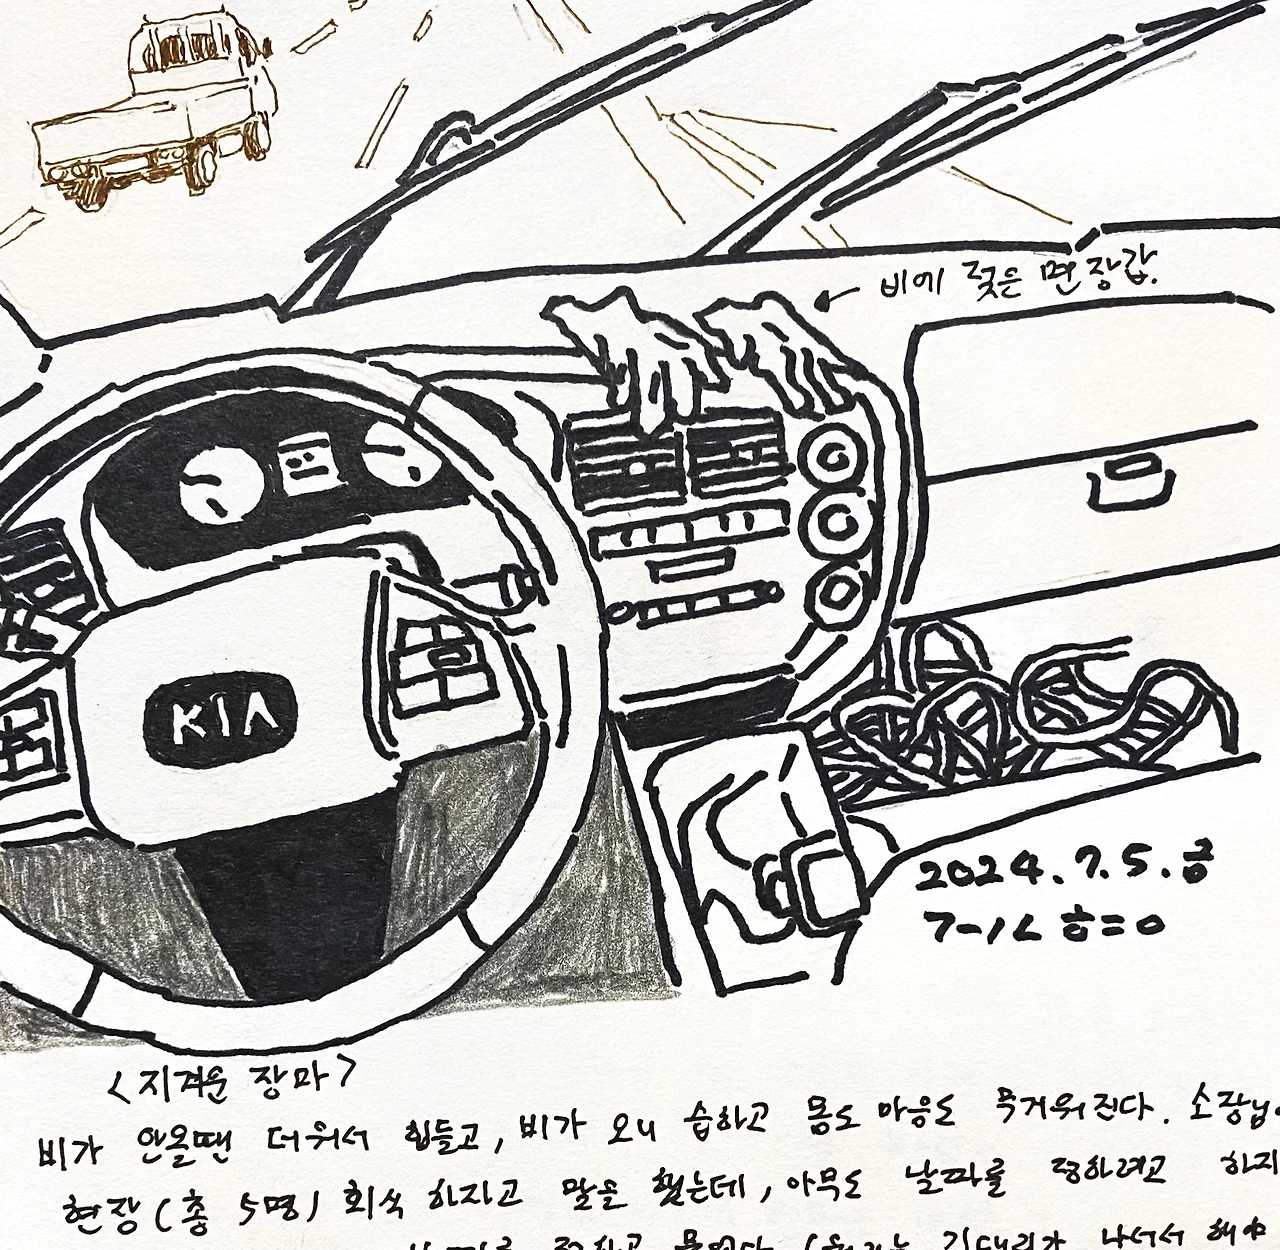 ← 비에 젖은 면장갑.
KIA
2024.7.5.금
<지겨운 장마>
비가 안올땐 더워서 힘들고, 비가 오니 습하고 몸도 마음도 무거워진다. 소장님
현장(총 5명) 회식 하자고 말을 했는데, 아무도 날짜를 정하려고 하지